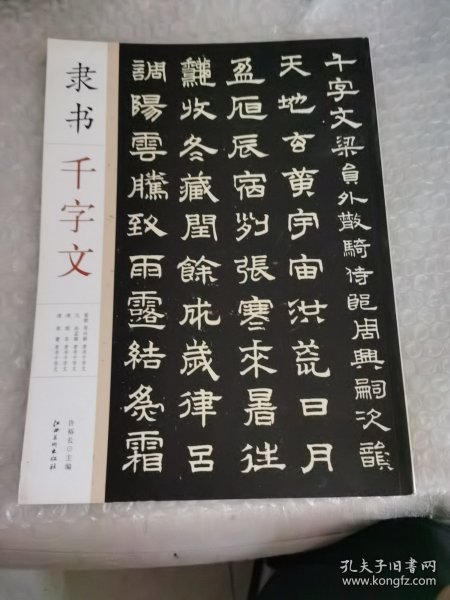 隶书
千字文
许裕长 主编
江西美术出版社
千字文梁員外散騎侍郎周興嗣次韻
天地玄黄宇宙洪荒日月
盈昃辰宿列張寒來暑往
龝收冬藏閏餘成歲律呂
調陽雲騰致雨露結為霜
孔夫子旧书网
www.kongfz.com